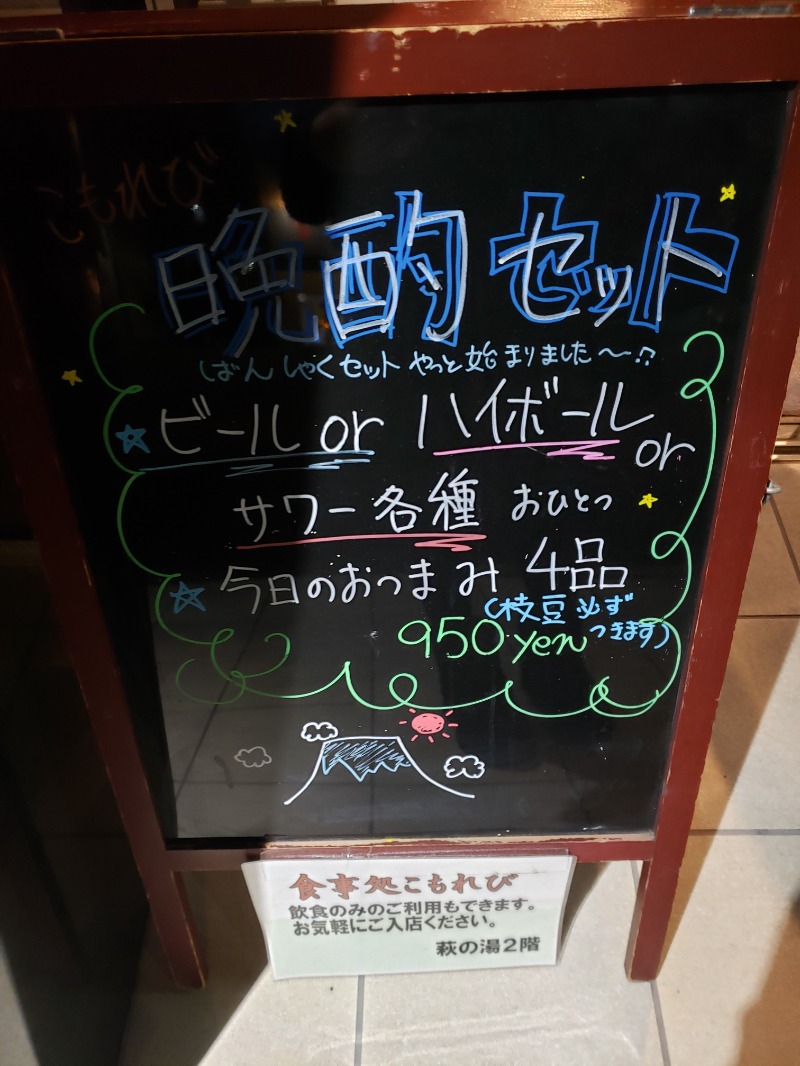 こもれび
晩酌セット
(ばんしゃくセット やっと始まりました〜♫
ビール or ハイボール or
サワー各種 おひとつ
今日のおつまみ 4品
(枝豆必ず
つきます)
950yen
食事処こもれび
飲食のみのご利用もできます。
お気軽にご入店ください。
萩の湯2階